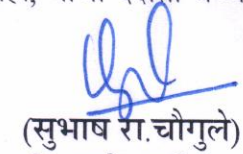 (सुभाष रा.चौगुले)